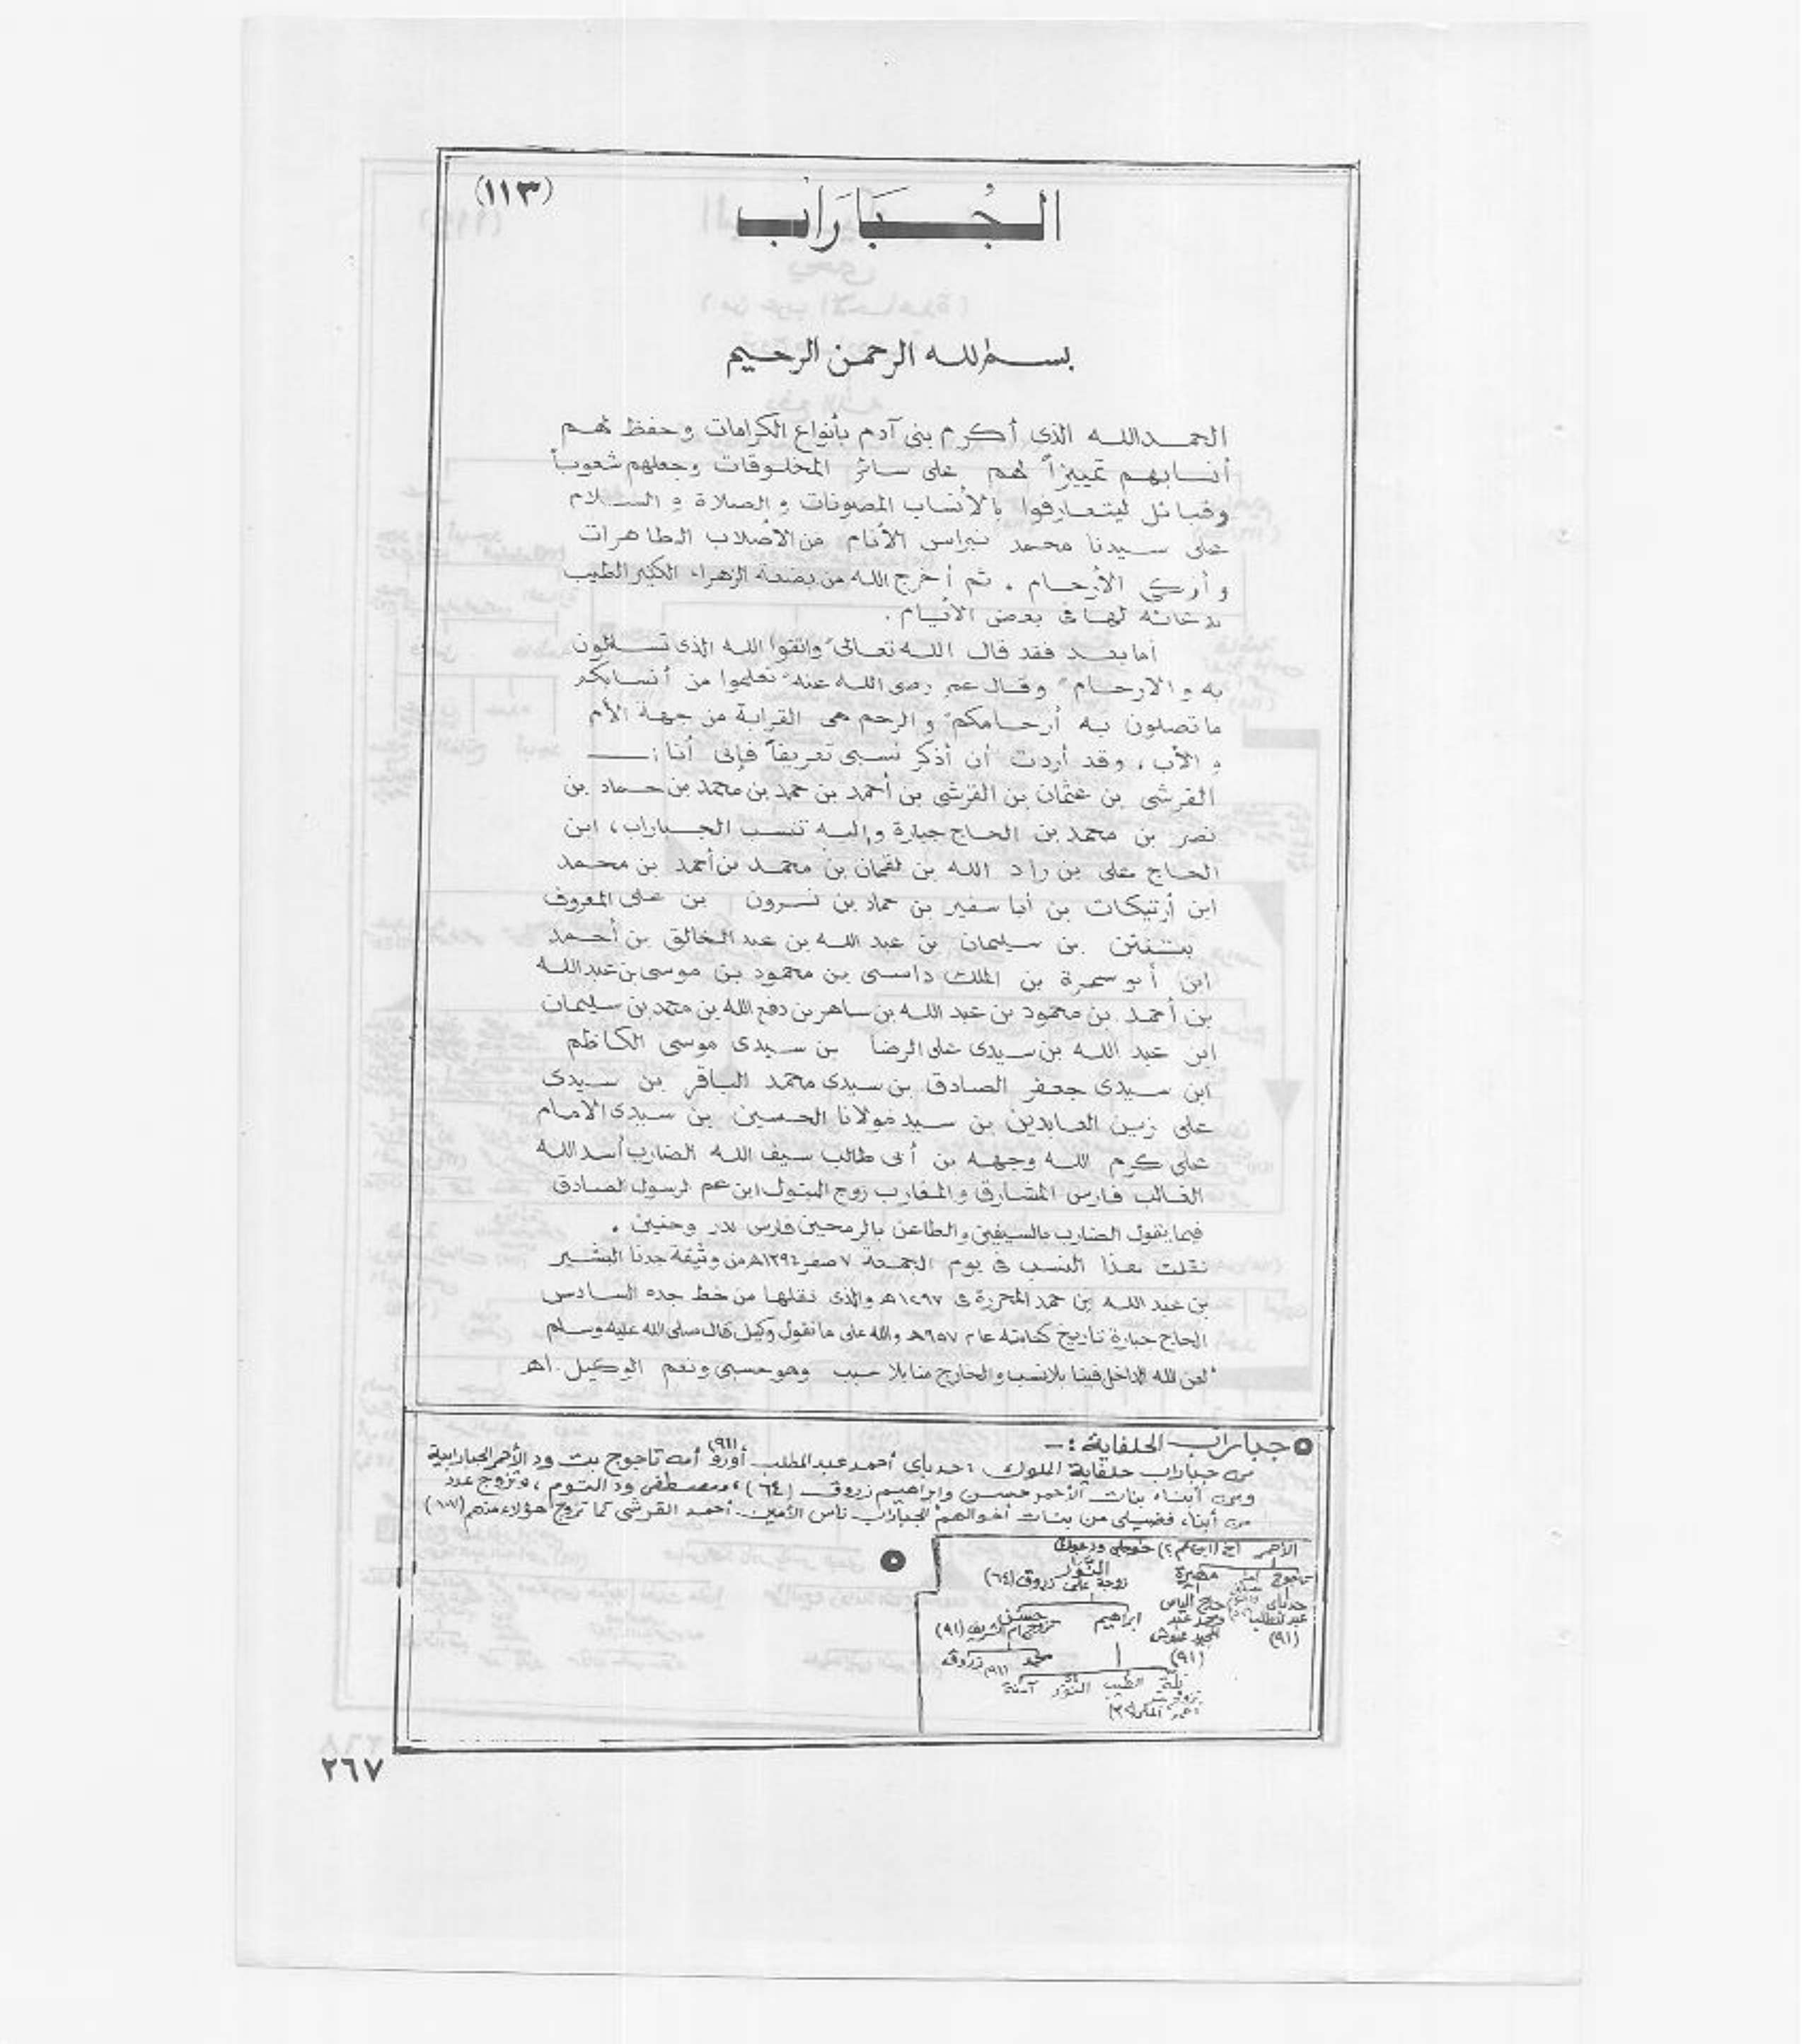 (١١٣)
الجُبَارَاب
بسم الله الرحمن الرحيم
الحمد لله الذى أكرم بنى آدم بأنواع الكرامات وحفظ لهم
أنسابهم تمييزاً لهم على سائر المخلوقات وجعلهم شعوباً
وقبائل ليتعارفوا بالأنساب المصونات والصلاة والسلام
على سيدنا محمد نبراس الأنام من الأصلاب الطاهرات
وأزكى الأرحام . ثم أخرج الله من بضعة الزهراء الكثير الطيب
لها فى بعض الأيام .
أما بعد فقد قال الله تعالى "واتقوا الله الذى تساءلون
به والارحام" وقال عمر رضى الله عنه "تعلموا من أنسابكم
ما تصلون به أرحامكم" والرحم هى القرابة من جهة الأم
والأب ، وقد أردت أن أذكر نسبى تعريفاً فإنى أنا :ـــ
القرشى بن عثمان بن القرشى بن أحمد بن حمد بن محمد بن حماد بن
نصر بن محمد بن الحاج جبارة وإليه تنسب الجباراب ، ابن
الحاج على بن زاد الله بن لقمان بن محمد بن أحمد بن محمد
ابن أرتيكات بن أبا سفير بن حماد بن نسرون بن على المعروف
بتنتن بن سليمان بن عبد الله بن عبد الخالق بن أحمد
ابن أبو سمرة بن الملك داسى بن محمود بن موسى بن عبد الله
بن أحمد بن محمود بن عبد الله بن ساهر بن دفع الله بن محمد بن سليمان
ابن عبد الله بن سيدى على الرضا بن سيدى موسى الكاظم
ابن سيدى جعفر الصادق بن سيدى محمد الباقر بن سيدى
على زين العابدين بن سيد مولانا الحسين بن سيدى الامام
على كرم الله وجهه بن أبى طالب سيف الله الضارب أسد الله
الغالب فارس المشارق والمغارب زوج البتول ابن عم الرسول الصادق
فيما يقول الضارب بالسيفين والطاعن بالرمحين فارس بدر وحنين .
نقلت هذا النسب فى يوم الجمعة ٧ صفر ١٣٩٤هـ من وثيقة جدنا البشير
بن عبد الله بن حمد المحررة فى ١٢٩٧هـ والذى نقلها من خط جده السادس
الحاج جبارة تاريخ كتابته عام ٩٥٧هـ والله على ما نقول وكيل قال صلى الله عليه وسلم
"لعن الله الداخل فينا بلا نسب والخارج منا بلا سبب وهو حسبى ونعم الوكيل . اهـ
جباراب الحلفاية :ـ
من جباراب حلفاية الملوك : حدباى أحمد عبد المطلب أورو (٩١) أمه تاجوج بت ود الأحمر الجبارابية
ومن أبناء بنات الأحمر حسن وابراهيم زروق (٦٤) ، ومصطفى ود التوم ، وتزوج عدد
من أبناء فضيلى من بنات أخوالهم الجباراب ناس الأمين أحمد القرشى كما تزوج هؤلاء منهم (١٠٧)
الأحمر أخ (ابن عم ؟)
تاجوج
مضيرة
النوَّار
زوجة على زروق (٦٤)
حدباى
عبد المطلب
(٩١)
حاج الياس
(٩١)
ابراهيم
حسن
تزوج ام الشريف (٩١)
محمد (٩١) زروق
نبلة الطيب النوَّر آمنة
٢٦٧